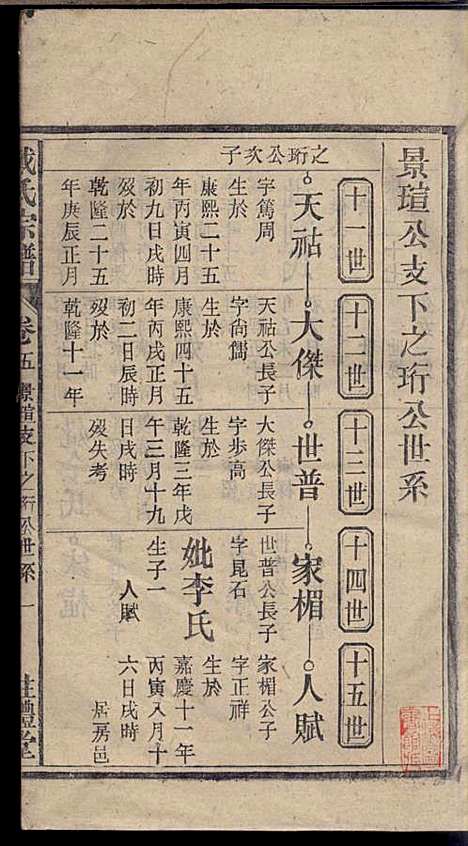 景瑄公支下之珩公世系
十一世
十二世
十三世
十四世
十五世
之珩公次子
天祜
大傑
世普
家楣
人賦
字篤周
生於
康熙二十五
年丙寅四月
初九日戌時
歿於
乾隆二十五
年庚辰正月
天祜公長子
字尚儒
生於
康熙四十五
年丙戌正月
初二日辰時
歿於
乾隆十一年
大傑公長子
字步高
生於
乾隆三年戊
午三月十九
日戌時
歿失考
世普公長子
字昆石
妣李氏
生子一
人賦
家楣公子
字正祥
生於
嘉慶十一年
丙寅八月十
六日戌時
居房邑
氏宗譜
卷五
景瑄支下之珩公世系
一
禮堂